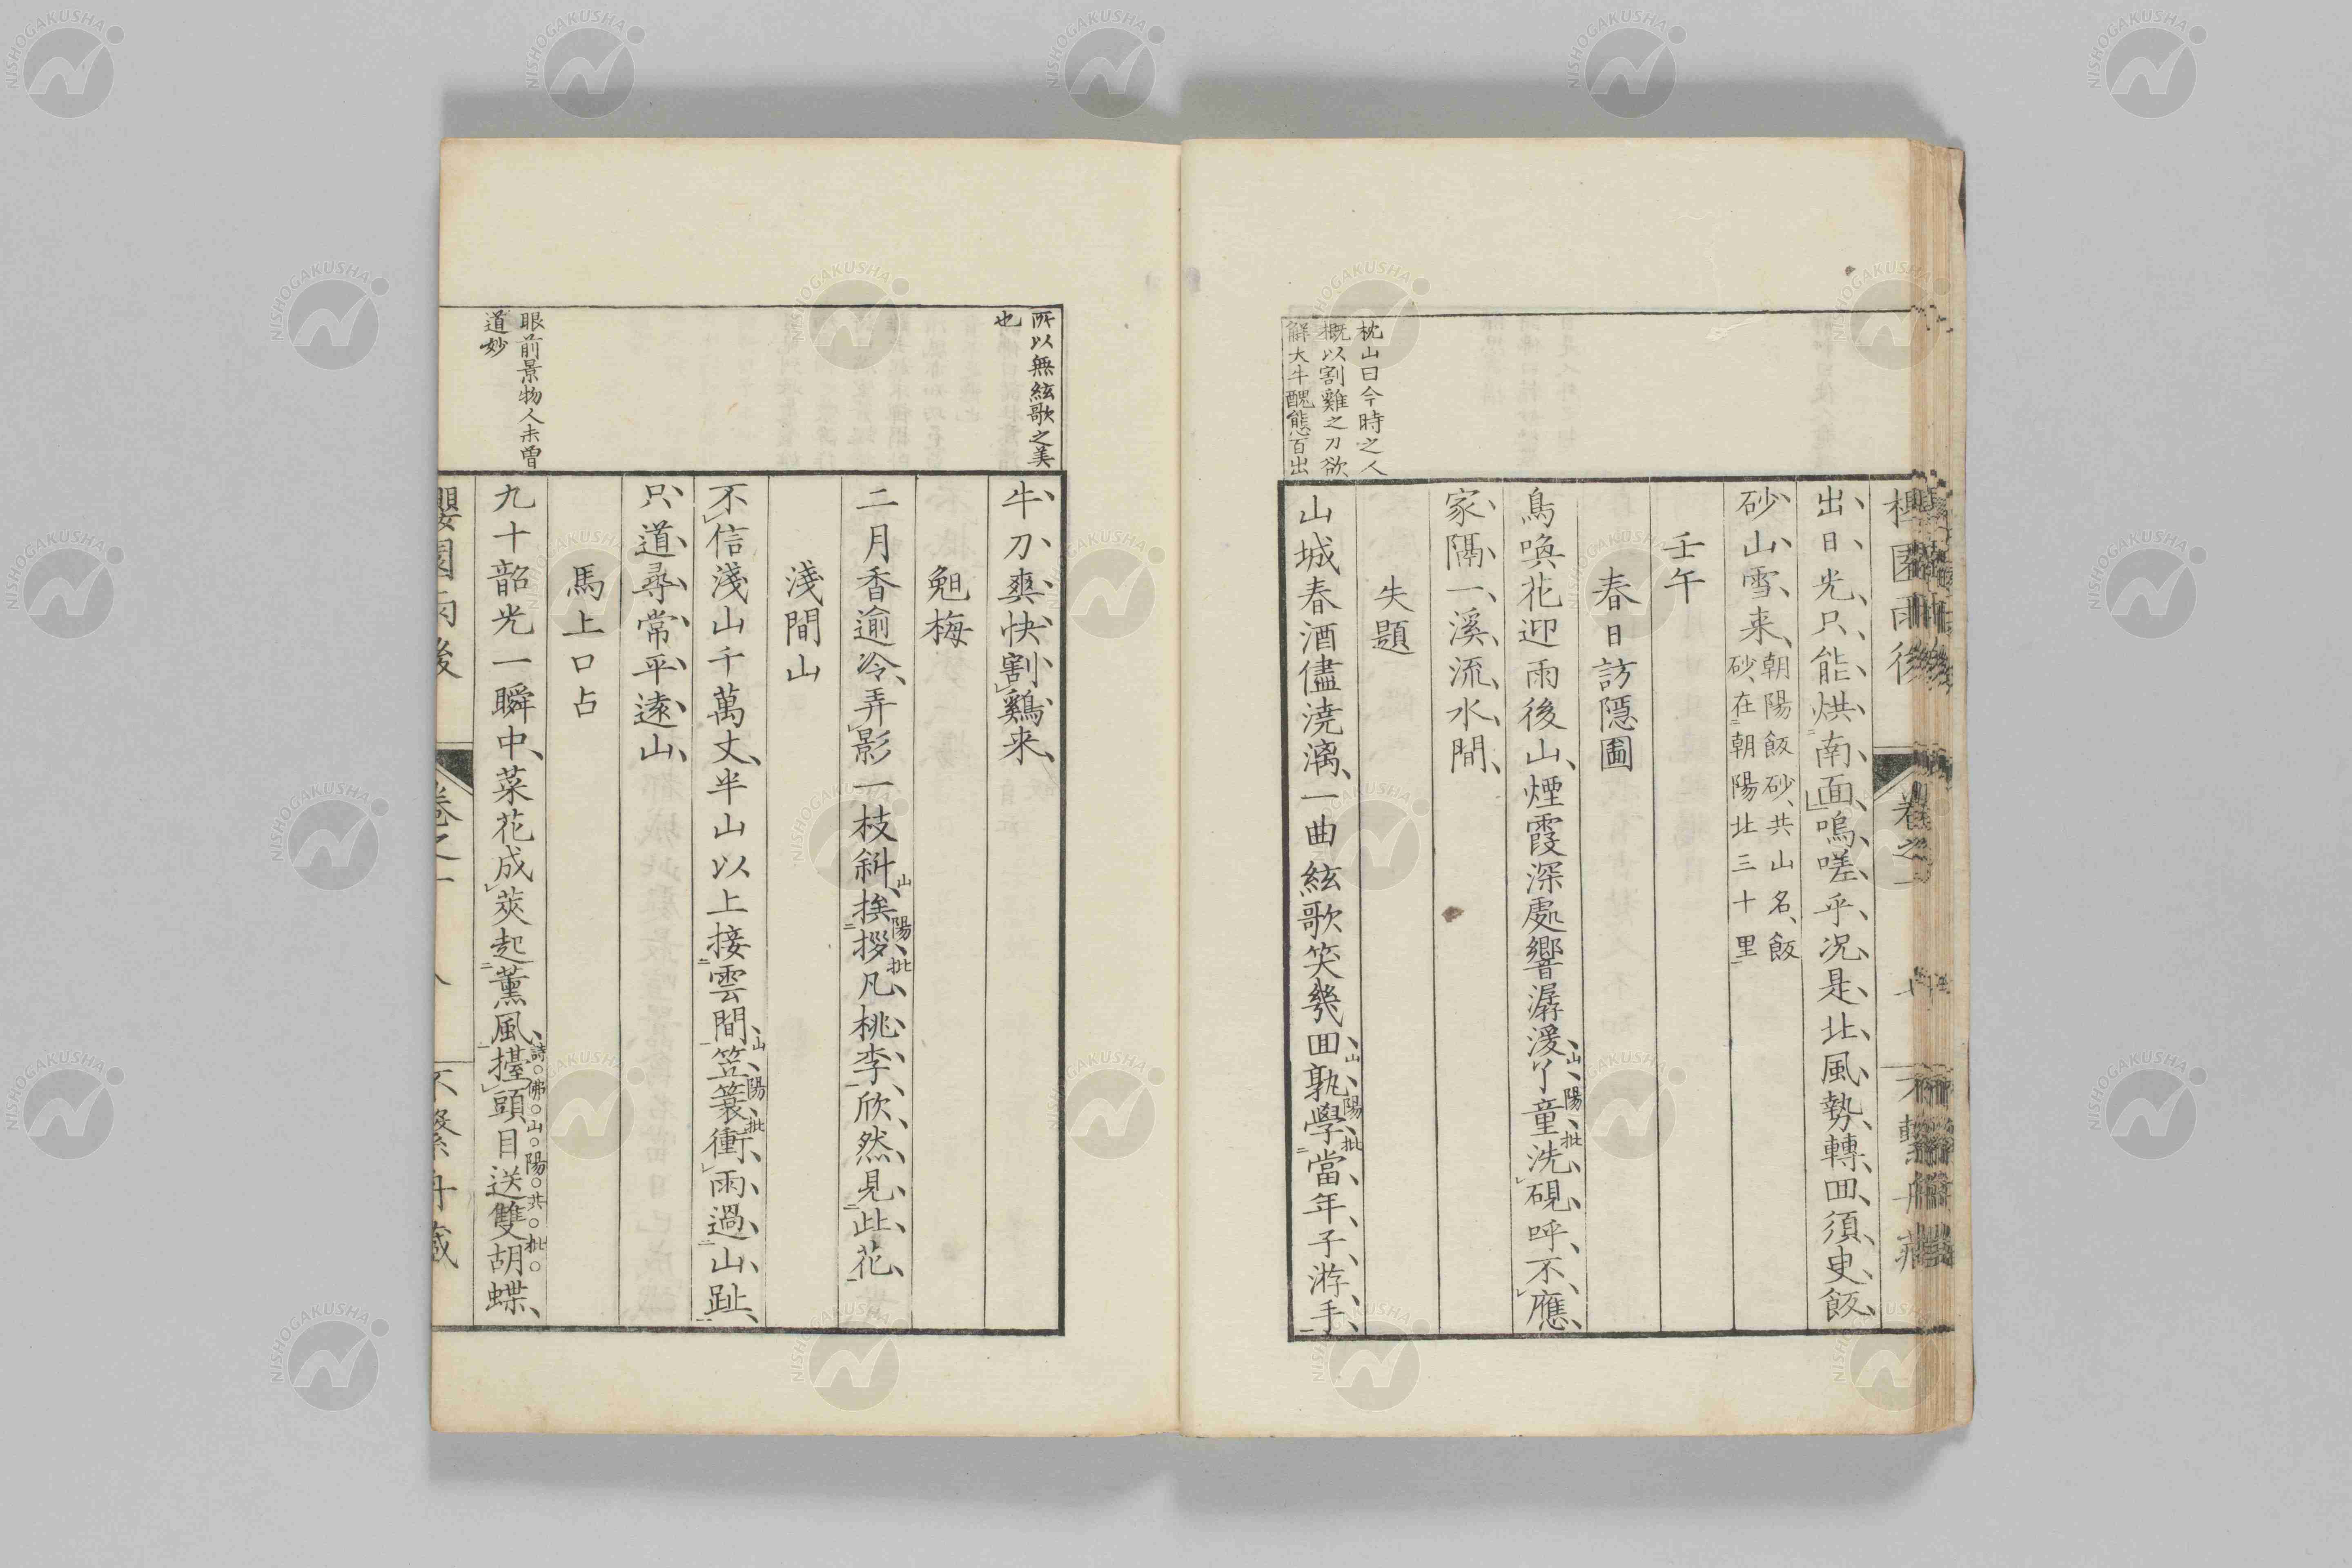 枕山曰今時之人
概以割雞之刀欲
解大牛醜態百出
出日光只能烘南面嗚嗟乎况是北風勢轉回須臾飯
砂山雪来
朝陽飯砂共山名飯
砂在朝陽北三十里
壬午
春日訪隱圃
鳥喚花迎雨後山煙霞深處響潺湲丫童洗硯呼不應
山陽批
家隔一溪流水間
失題
山城春酒儘澆漓一曲絃歌笑幾回孰學當年子游手
山陽批
所以無絃歌之美
也
眼前景物人未曽
道妙
牛刀爽快割鷄来
梅
二月香逾冷弄影一枝斜挨拶凡桃李欣然見此花
山陽批
淺間山
不信淺山千萬丈半山以上接雲間笠簑衝雨過山趾
山陽批
只道尋常平遠山
馬上口占
九十韶光一瞬中菜花成莢起薫風擡頭目送雙胡蝶
詩佛山陽共批
卷之一
NISHOGAKUSHA